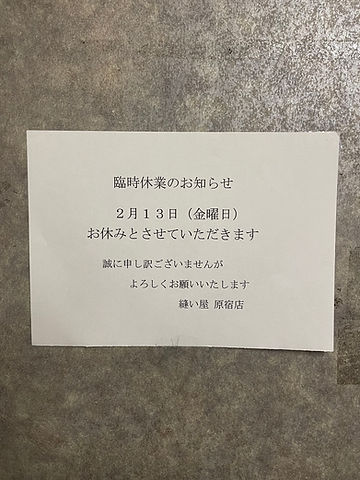 臨時休業のお知らせ
２月１３日（金曜日）
お休みとさせていただきます
誠に申し訳ございませんが
よろしくお願いいたします
縫い屋 原宿店